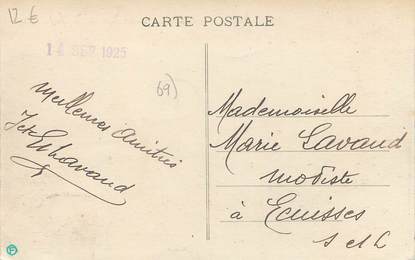 12 €
CARTE POSTALE
14 SEP 1925
69)
Meilleures amitiés
Mademoiselle
Marie Lavaud
modiste
à Ecuisses
S et L